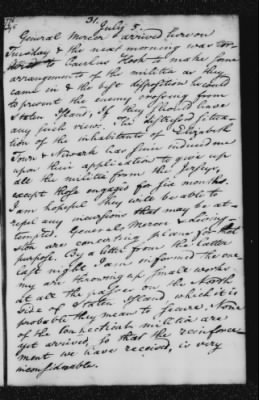 31.
July 5.
General Mercer arrived here on
Tuesday & the next morning was or-
dered to Paulus Hook to make some
arrangements of the militia as they
came in & the best disposition he could
to prevent the enemy crossing from
Staten Island, if they should have
any such views. The distressed situa-
tion of the inhabitants of Elizabeth
Town & Newark has since induced me
upon their application to give up
all the militia from the Jerseys,
except those engaged for six months.
I am hopeful they will be able to
repel any incursions that may be at-
tempted. Generals Mercer & Living-
ston are concerting plans for that
purpose. By a letter from the latter
last night I am informed the ene-
my are throwing up small works
at all the passes on the North
side of Staten Island, which it is
probable they mean to secure. None
of the Connecticut militia are
yet arrived, so that the reinforce
ment we have received, is very
inconsiderable.